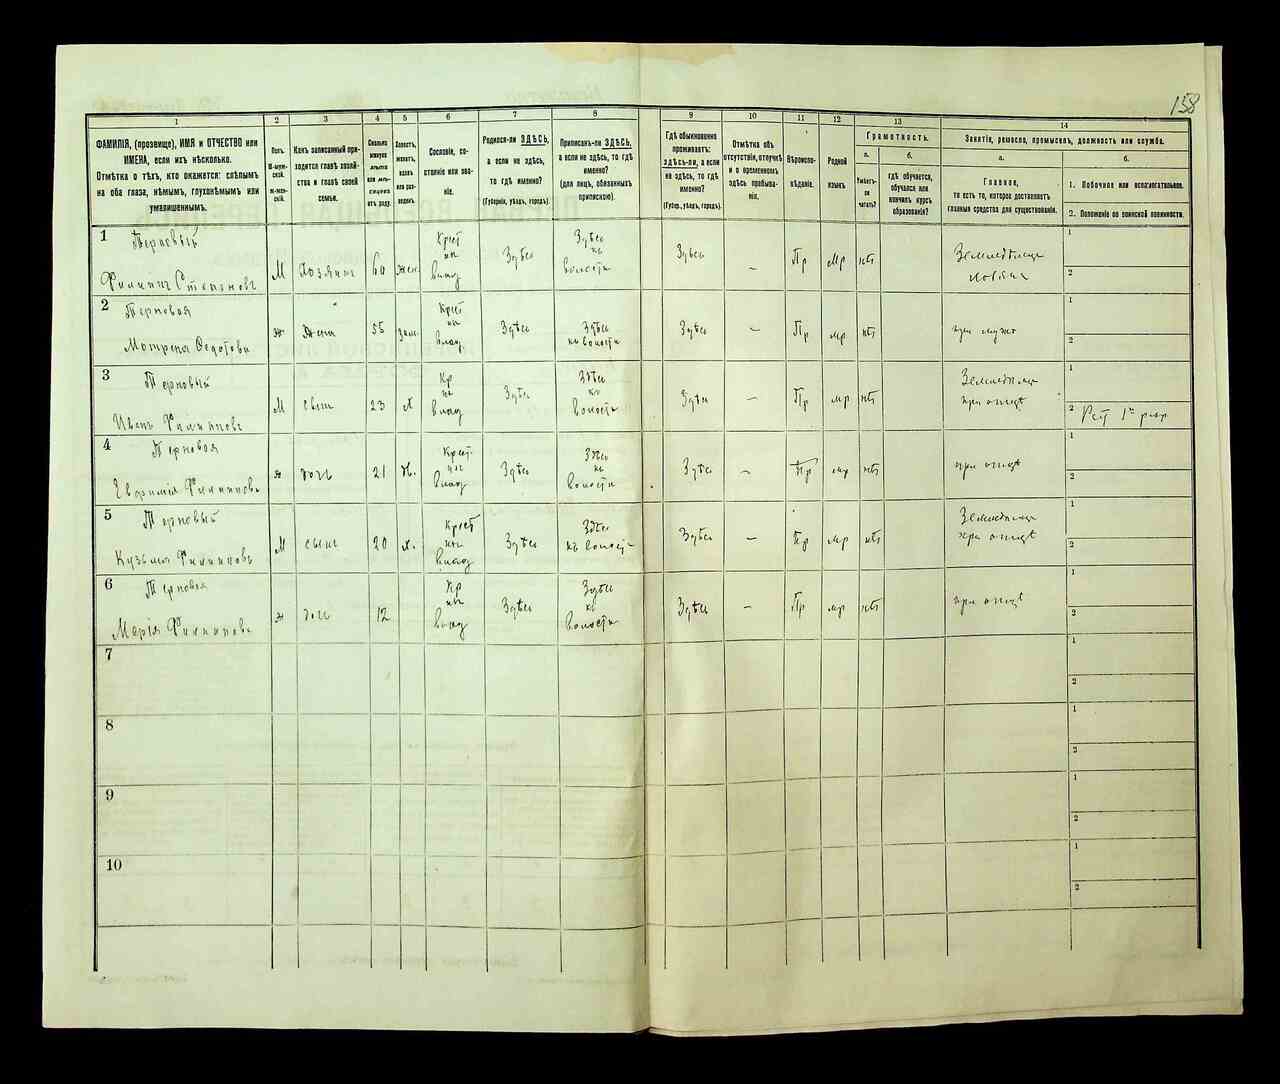 158
1
2
3
4
5
6
7
8
9
10
11
12
13
14
ФАМИЛІЯ, (прозвище), ИМЯ и ОТЧЕСТВО или
ИМЕНА, если ихъ нѣсколько.
Отмѣтка о тѣхъ, кто окажется: слѣпымъ
на оба глаза, нѣмымъ, глухонѣмымъ или
умалишеннымъ.
Полъ.
М-муж-
ской.
Ж-жен-
скій.
Какъ записанный при-
ходится главѣ хозяй-
ства и главѣ своей
семьи.
Сколько
минуло
лѣтъ
или мѣ-
сяцевъ
отъ роду.
Холостъ,
женатъ,
вдовъ
или раз-
веденъ.
Сословіе, со-
стояніе или зва-
ніе.
Родился-ли ЗДѢСЬ,
а если не здѣсь,
то гдѣ именно?
(Губернія, уѣздъ, городъ).
Приписанъ-ли ЗДѢСЬ,
а если не здѣсь, то гдѣ
именно?
(для лицъ, обязанныхъ
припискою).
Гдѣ обыкновенно
проживаетъ:
здѣсь-ли, а если
не здѣсь, то гдѣ
именно?
(Губер., уѣздъ, городъ).
Отмѣтка объ
отсутствіи, отлучкѣ
и о временномъ
здѣсь пребыва-
ніи.
Вѣроиспо-
вѣданіе.
Родной
языкъ.
Грамотность.
а.
Умѣетъ-
ли
читать?
б.
гдѣ обучается,
обучался или
кончилъ курсъ
образованія?
Занятіе, ремесло, промыселъ, должность или служба.
а.
Главное,
то есть то, которое доставляетъ
главныя средства для существованія.
б.
1. Побочное или вспомогательное.
2. Положеніе по воинской повинности.
1
Терновый
Филиппъ Степановъ
М
хозяинъ
60
жен
Крест
Здѣсь
Здѣсь
волости
Здѣсь
—
Пр
мр
нѣт
1
2
2
Терновая
Мотрена Федотова
ж
жена
55
зам
Крест
Здѣсь
Здѣсь
къ волости
Здѣсь
—
Пр
мр
нѣт
при мужѣ
1
2
3
Терновый
Иванъ Филиповъ
М
сынъ
23
х
Кр
Здѣсь
Здѣсь
къ
волости
Здѣсь
—
Пр
мр
нѣт
при отцѣ
1
2
4
Терновая
Евфимія Филиппова
ж
дочь
21
Крест
Здѣсь
Здѣсь
къ
волости
Здѣсь
—
Пр
мр
нѣт
при отцѣ
1
2
5
Терновый
Кузьма Филиповъ
М
сынъ
20
х.
Крест
Здѣсь
Здѣсь
къ волости
Здѣсь
—
Пр
мр
нѣт
при отцѣ
1
2
6
Терновая
Марія Филипова
ж
дочь
12
Кр
Здѣсь
Здѣсь
къ
волости
Здѣсь
—
Пр
мр
нѣт
при отцѣ
1
2
7
1
2
8
1
2
9
1
2
10
1
2